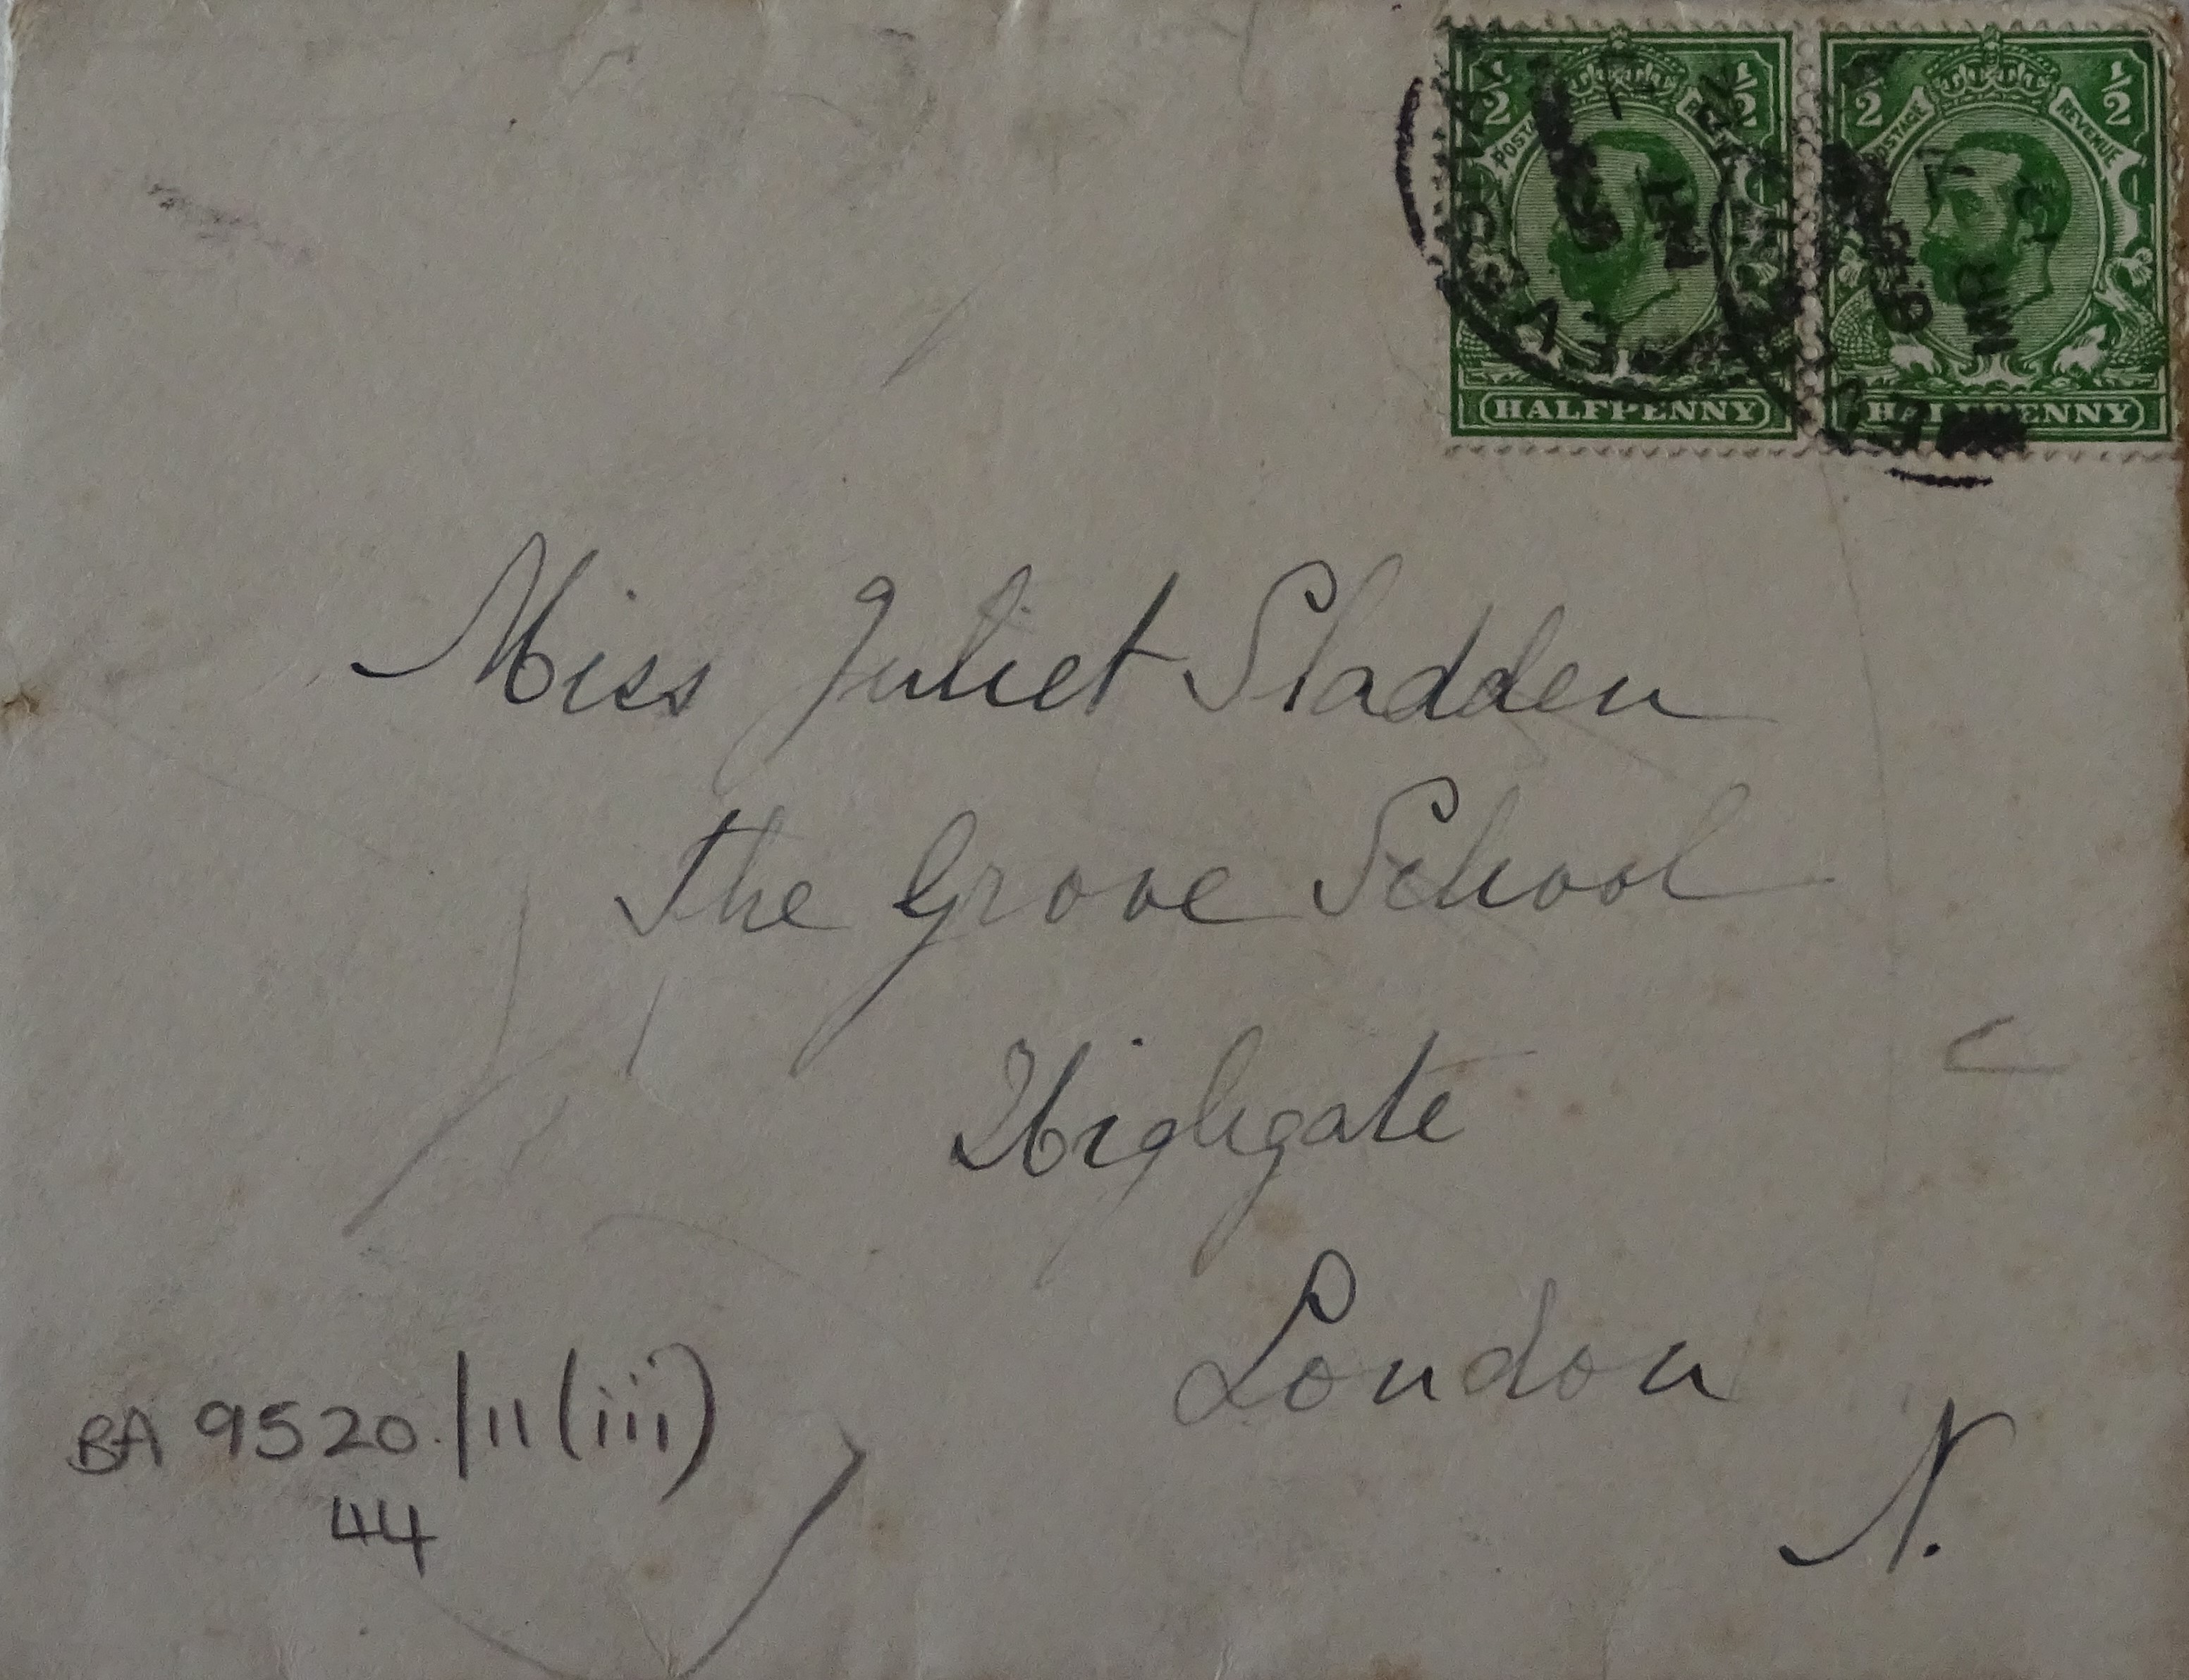 ½ ½ ½ ½
POSTAGE REVENUE
HALFPENNY HALFPENNY
MR 13
Miss Juliet Sladden
The Grove School
Highgate
London
N.
BA 9520/11(iii)
44